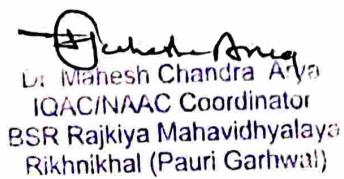 Dr Mahesh Chandra Arya
IQAC/NAAC Coordinator
BSR Rajkiya Mahavidhyalaya
Rikhnikhal (Pauri Garhwal)